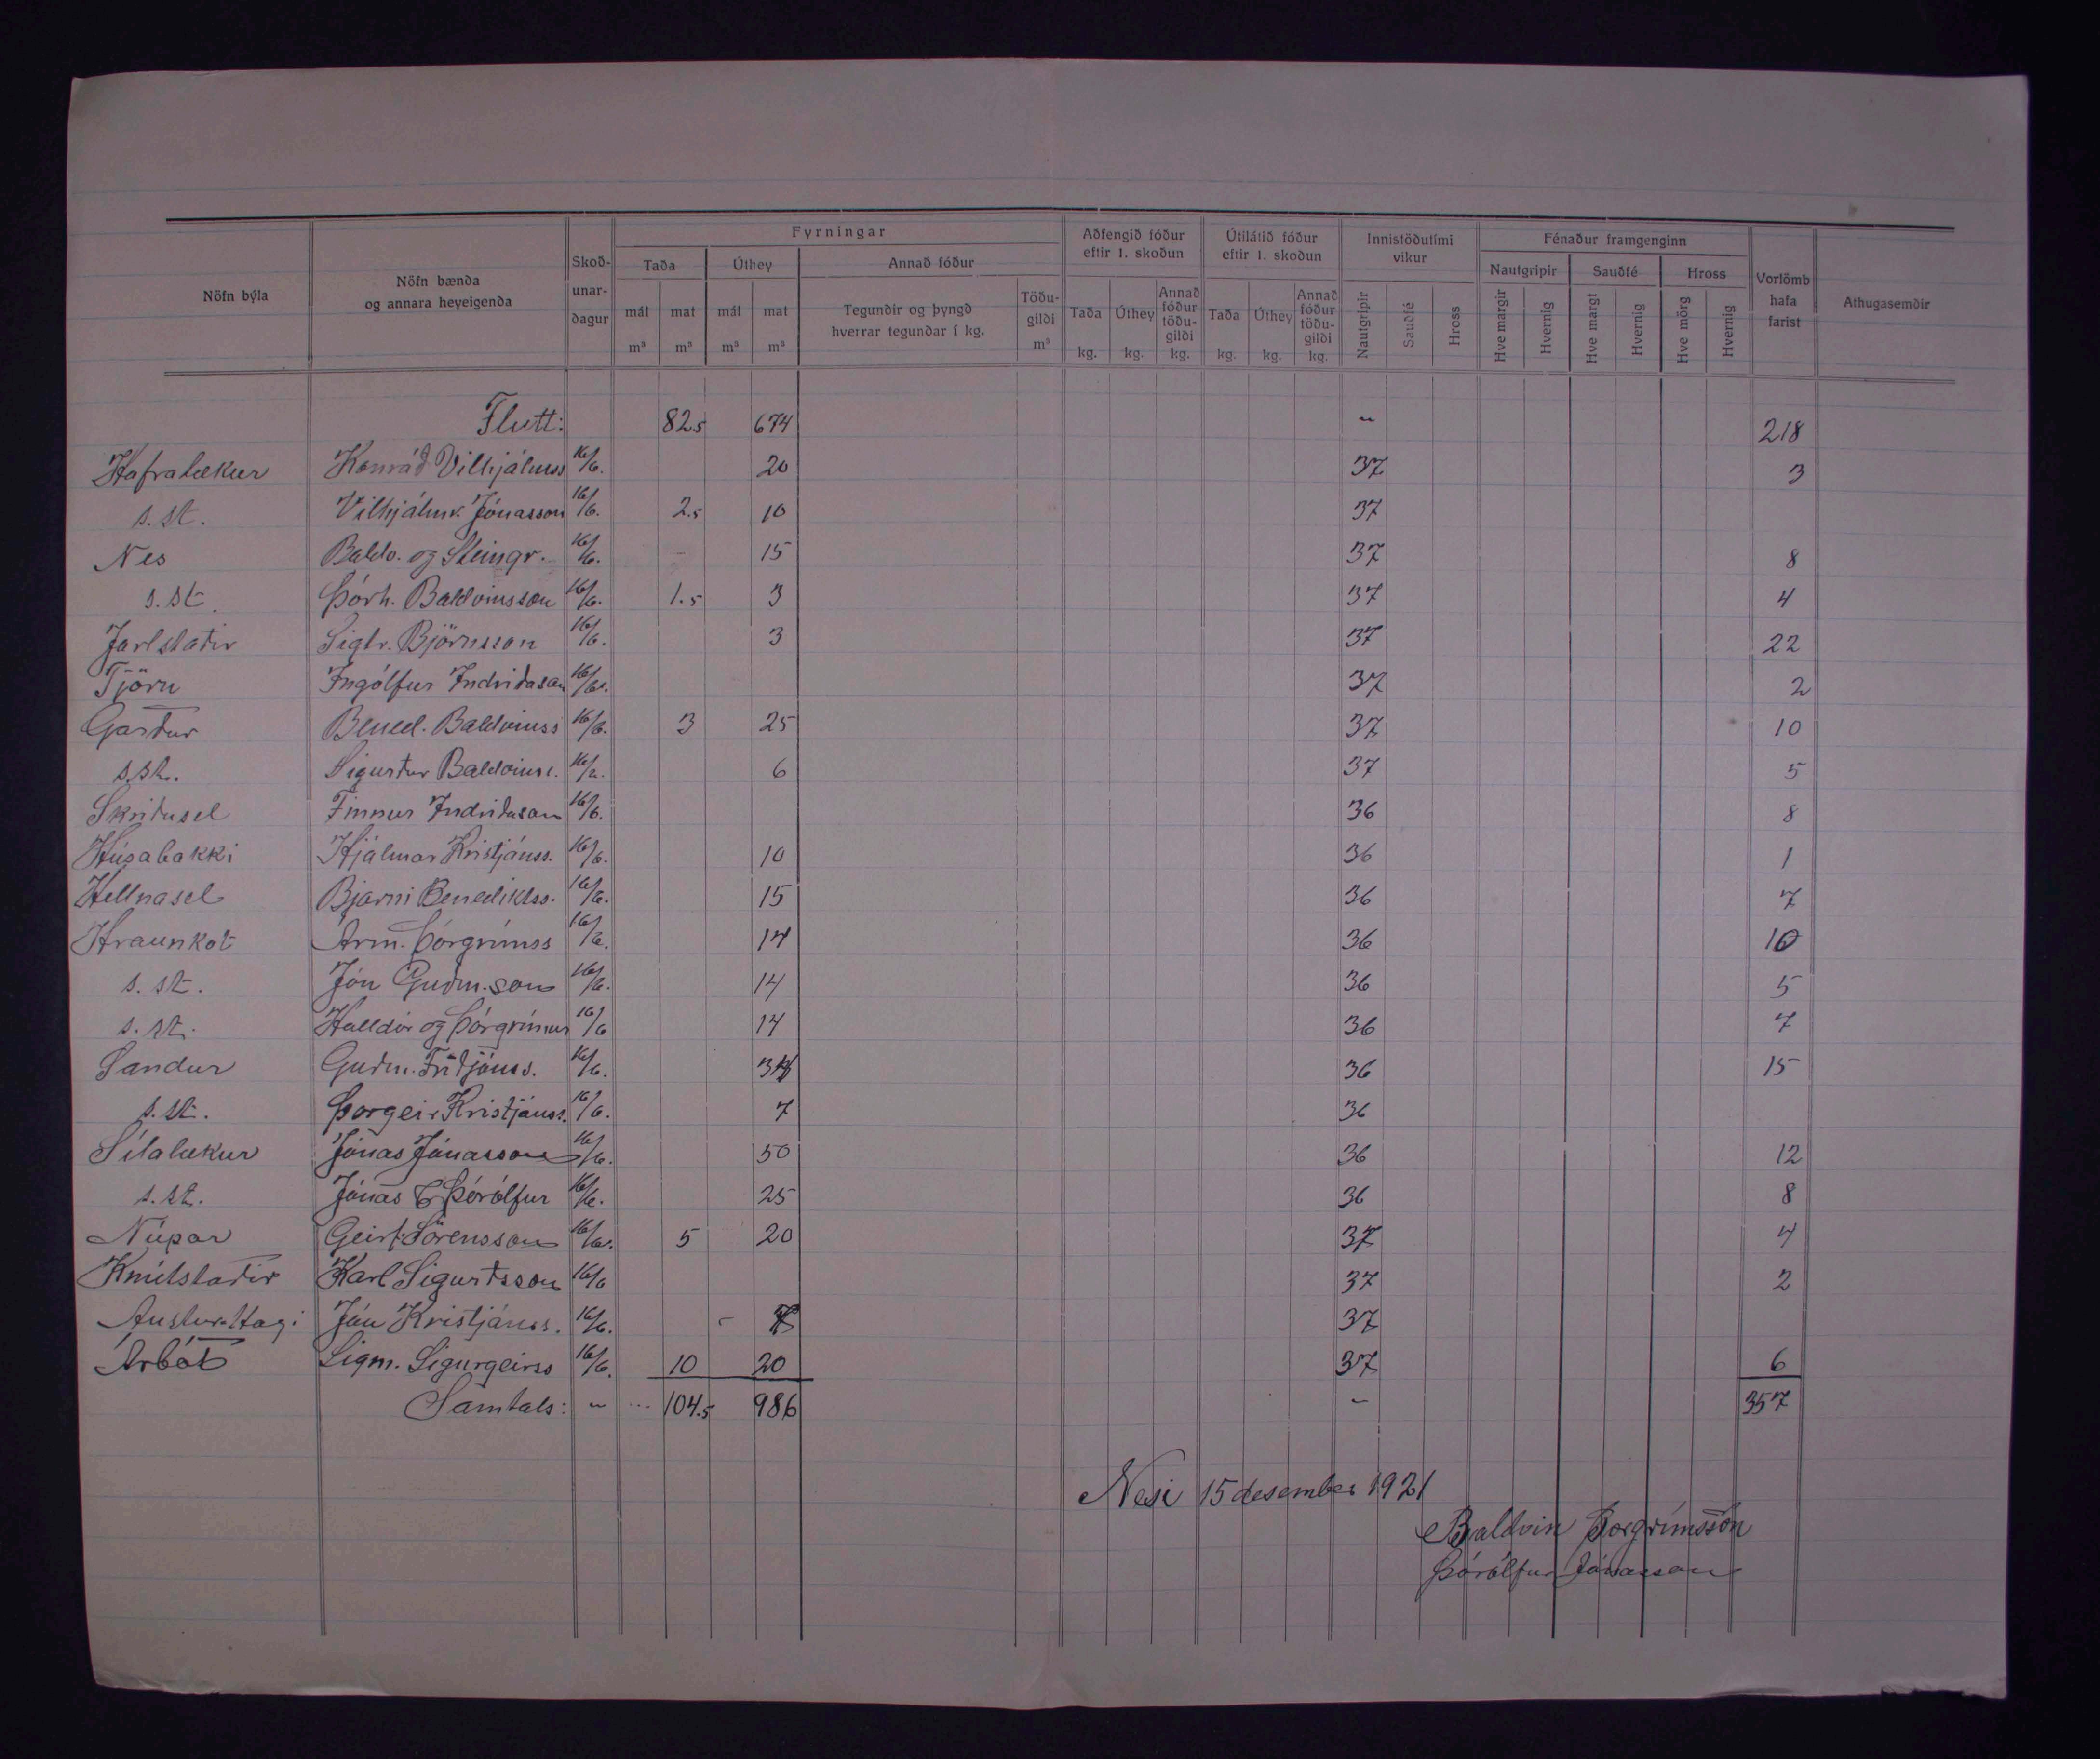 Fyrningar Aðfengið fóður Útilátið fóður Innistöðutími Fénaður framgenginn
eftir 1. skoðun eftir 1. skoðun vikur
Nöfn býla Nöfn bænda og annara heyeigenda Skoð-unar-dagur Taða Úthey Annað fóður Nautgripir Sauðfé Hross Vorlömb hafa farist Athugasemdir
mál mat mál mat Tegundir og þyngd hverrar tegundar í kg. Töðu-gildi Taða Úthey Annað fóður töðu-gildi Taða Úthey Annað fóður töðu-gildi Nautgripir Sauðfé Hross Hve margir Hvernig Hve margt Hvernig Hve mörg Hvernig
m³ m³ m³ m³ m³ kg. kg. kg. kg. kg. kg.
Flutt: 82.5 674 " 218
Hafralækur Konráð Vilhjálmss 16/6. 20 37 3
s. st. Vilhjálmr. Jónasson 16/6. 2.5 10 37
Nes Baldv. og Steingr. 16/6. 15 37 8
s. st. Þórh. Baldvinsson 16/6. 1.5 3 37 4
Jarlstaðir Sigtr. Björnsson 16/6. 3 37 22
Tjörn Ingólfur Indriðason 16/6. 37 2
Garður Bened. Baldvinss 16/6. 3 25 37 10
s. st. Sigurður Baldvinss. 16/6. 6 37 5
Skriðusel Finnur Indriðason 16/6. 36 8
Húsabakki Hjálmar Kristjánss. 16/6. 10 36 1
Hellnasel Bjarni Benediktss. 16/6. 15 36 7
Hraunkot Árm. Þorgrímss 16/6. 14 36 10
s. st. Jón Guðm.son 16/6. 14 36 5
s. st. Halldór og Þórgrímur 16/6 14 36 7
Sandur Guðm. Friðjónss. 16/6. 34 36 15
s. st. Þorgeir Kristjánss. 16/6. 7 36
Sílalækur Jónas Jónasson 16/6. 50 36 12
s. st. Jónas & Þórólfur 16/6. 25 36 8
Núpar Geirf. Sörensson 16/6. 5 20 37 4
Knútstaðir Karl Sigurðsson 16/6 37 2
Austur-Hagi Jón Kristjánss. 16/6. - 37
Árbót Sigm. Sigurgeirss 16/6. 10 20 37 6
Samtals: " ... 104.5 986 " 357
Nesi 15 desember 1921
Baldvin Þorgrímsson
Þórólfur Jónasson